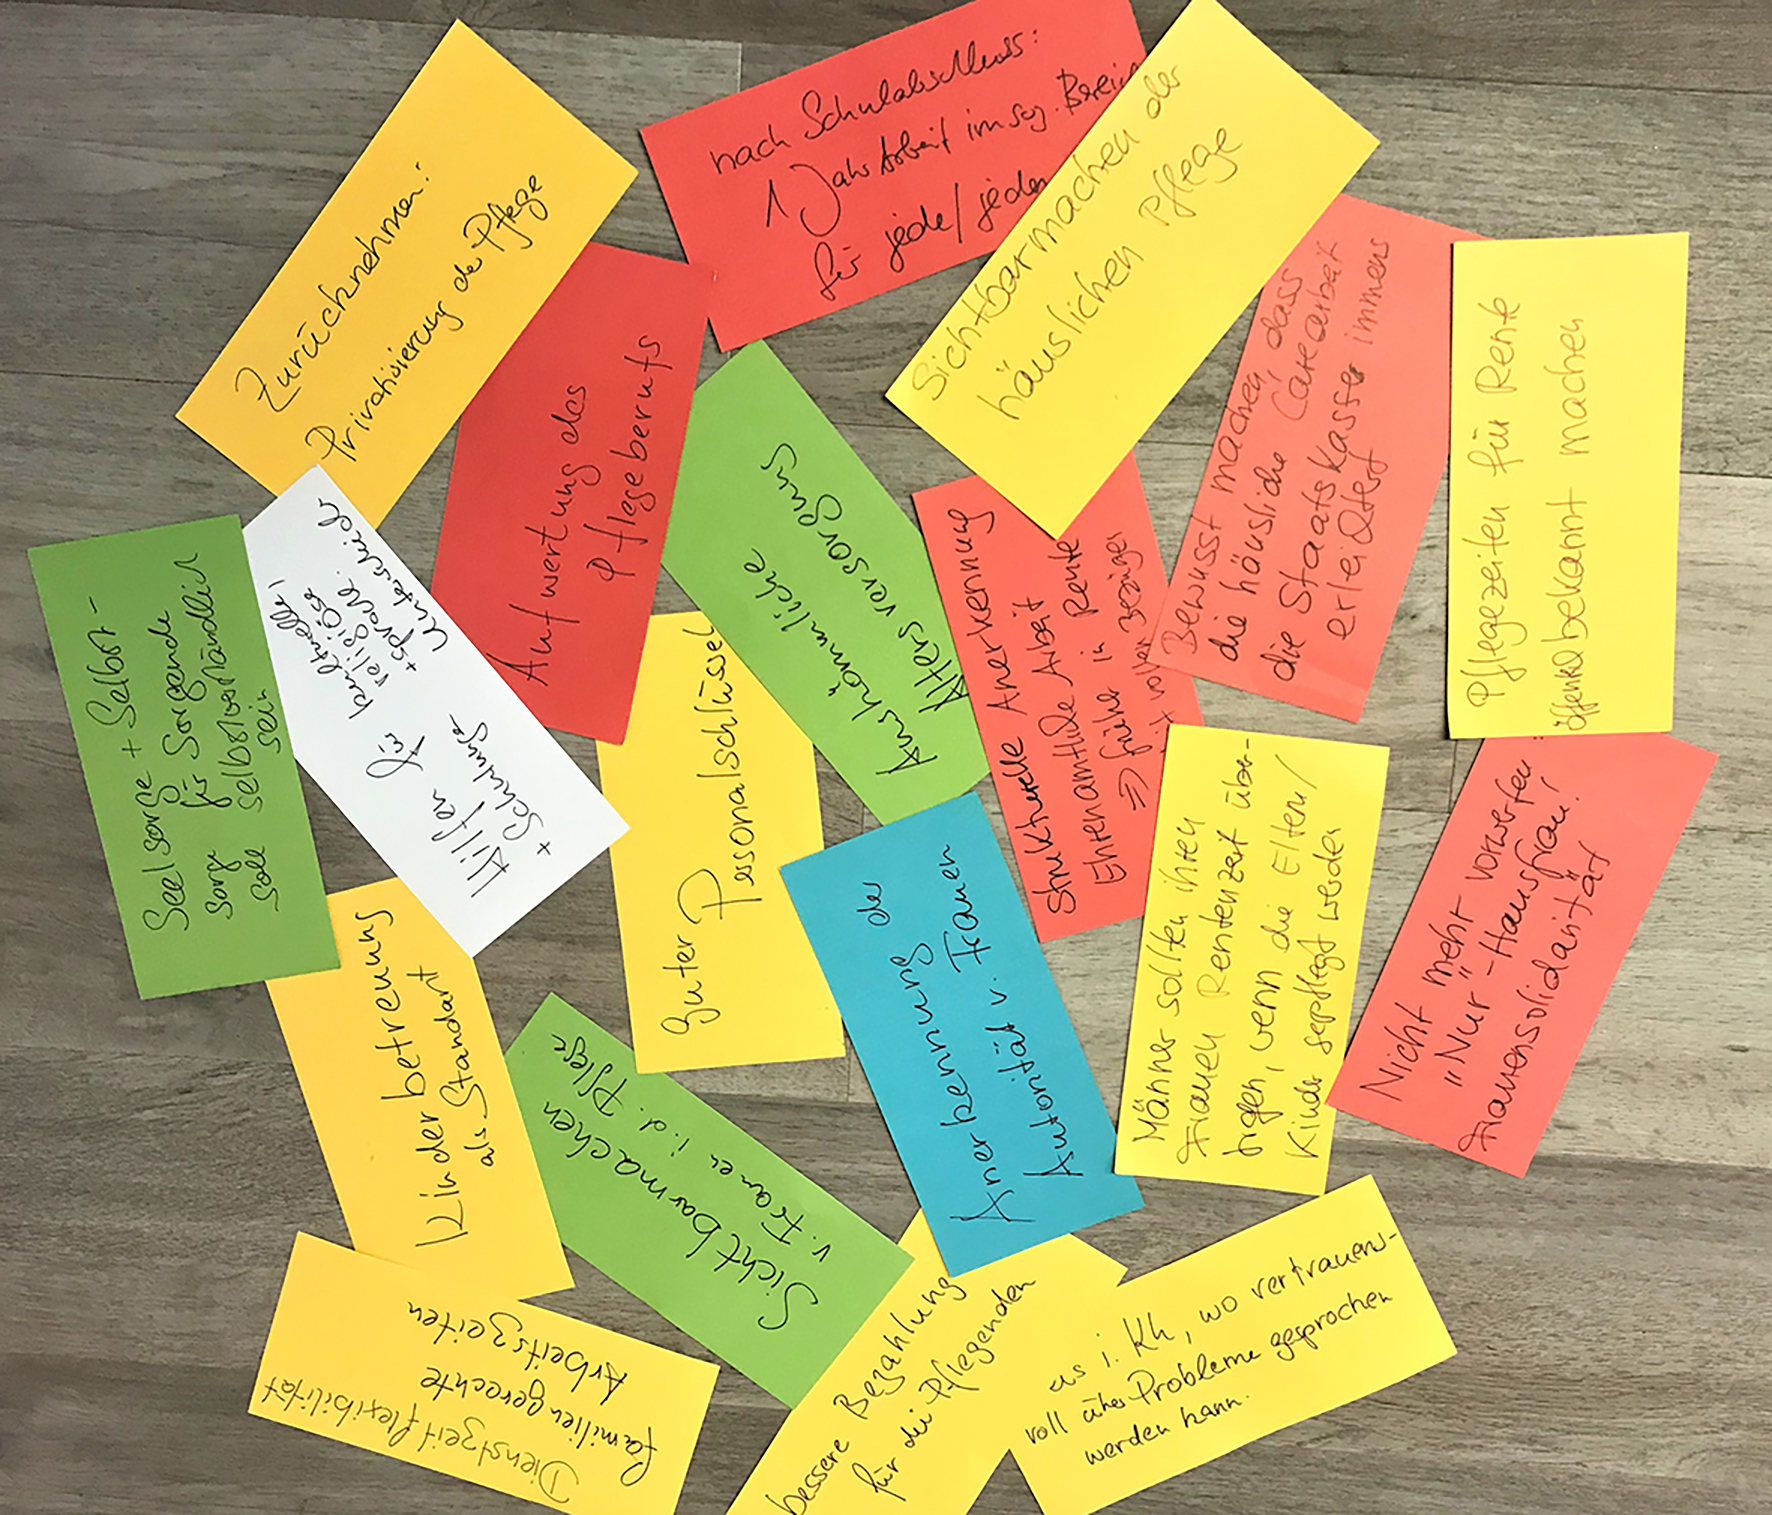 Zurücknehmen:
Privatisierung der Pflege
nach Schulabschluss:
1 Jahr Arbeit im soz. Bereich
für jede/jeden
Sichtbarmachen der
häuslichen Pflege
Bewusst machen, dass
die häusliche Carearbeit
die Staatskasse immens
erleichtert
Pflegezeiten für Rente
öffentl. bekannt machen
Aufwertung des
Pflegeberufs
Auskömmliche
Altersversorgung
Strukturelle Anerkennung
Ehrenamtliche Arbeit
⇒ früher in Rente
voller
Seelsorge + Selbst-
sorge für Sorgende
soll selbstverständlich
sein
Hilfen für kulturelle,
religiöse
+ sprachl.
Unterschiede
+ Schulunge
guter Personalschlüssel
Anerkennung der
Autorität v. Frauen
Männer sollten ihren
Frauen Rentenzeit über-
tragen, wenn die Eltern/
Kinder gepflegt werden
Nicht mehr vorwerfen
"Nur"-Hausfrau!
Frauensolidarität
Kinderbetreuung
als Standart
Sichtbarmachen
v. Frauen i. d. Pflege
Dienstzeitflexibilität
familiengerechte
Arbeitszeiten
bessere Bezahlung
für die Pflegenden
i. Kh, wo vertrauens-
voll über Probleme gesprochen
werden kann.